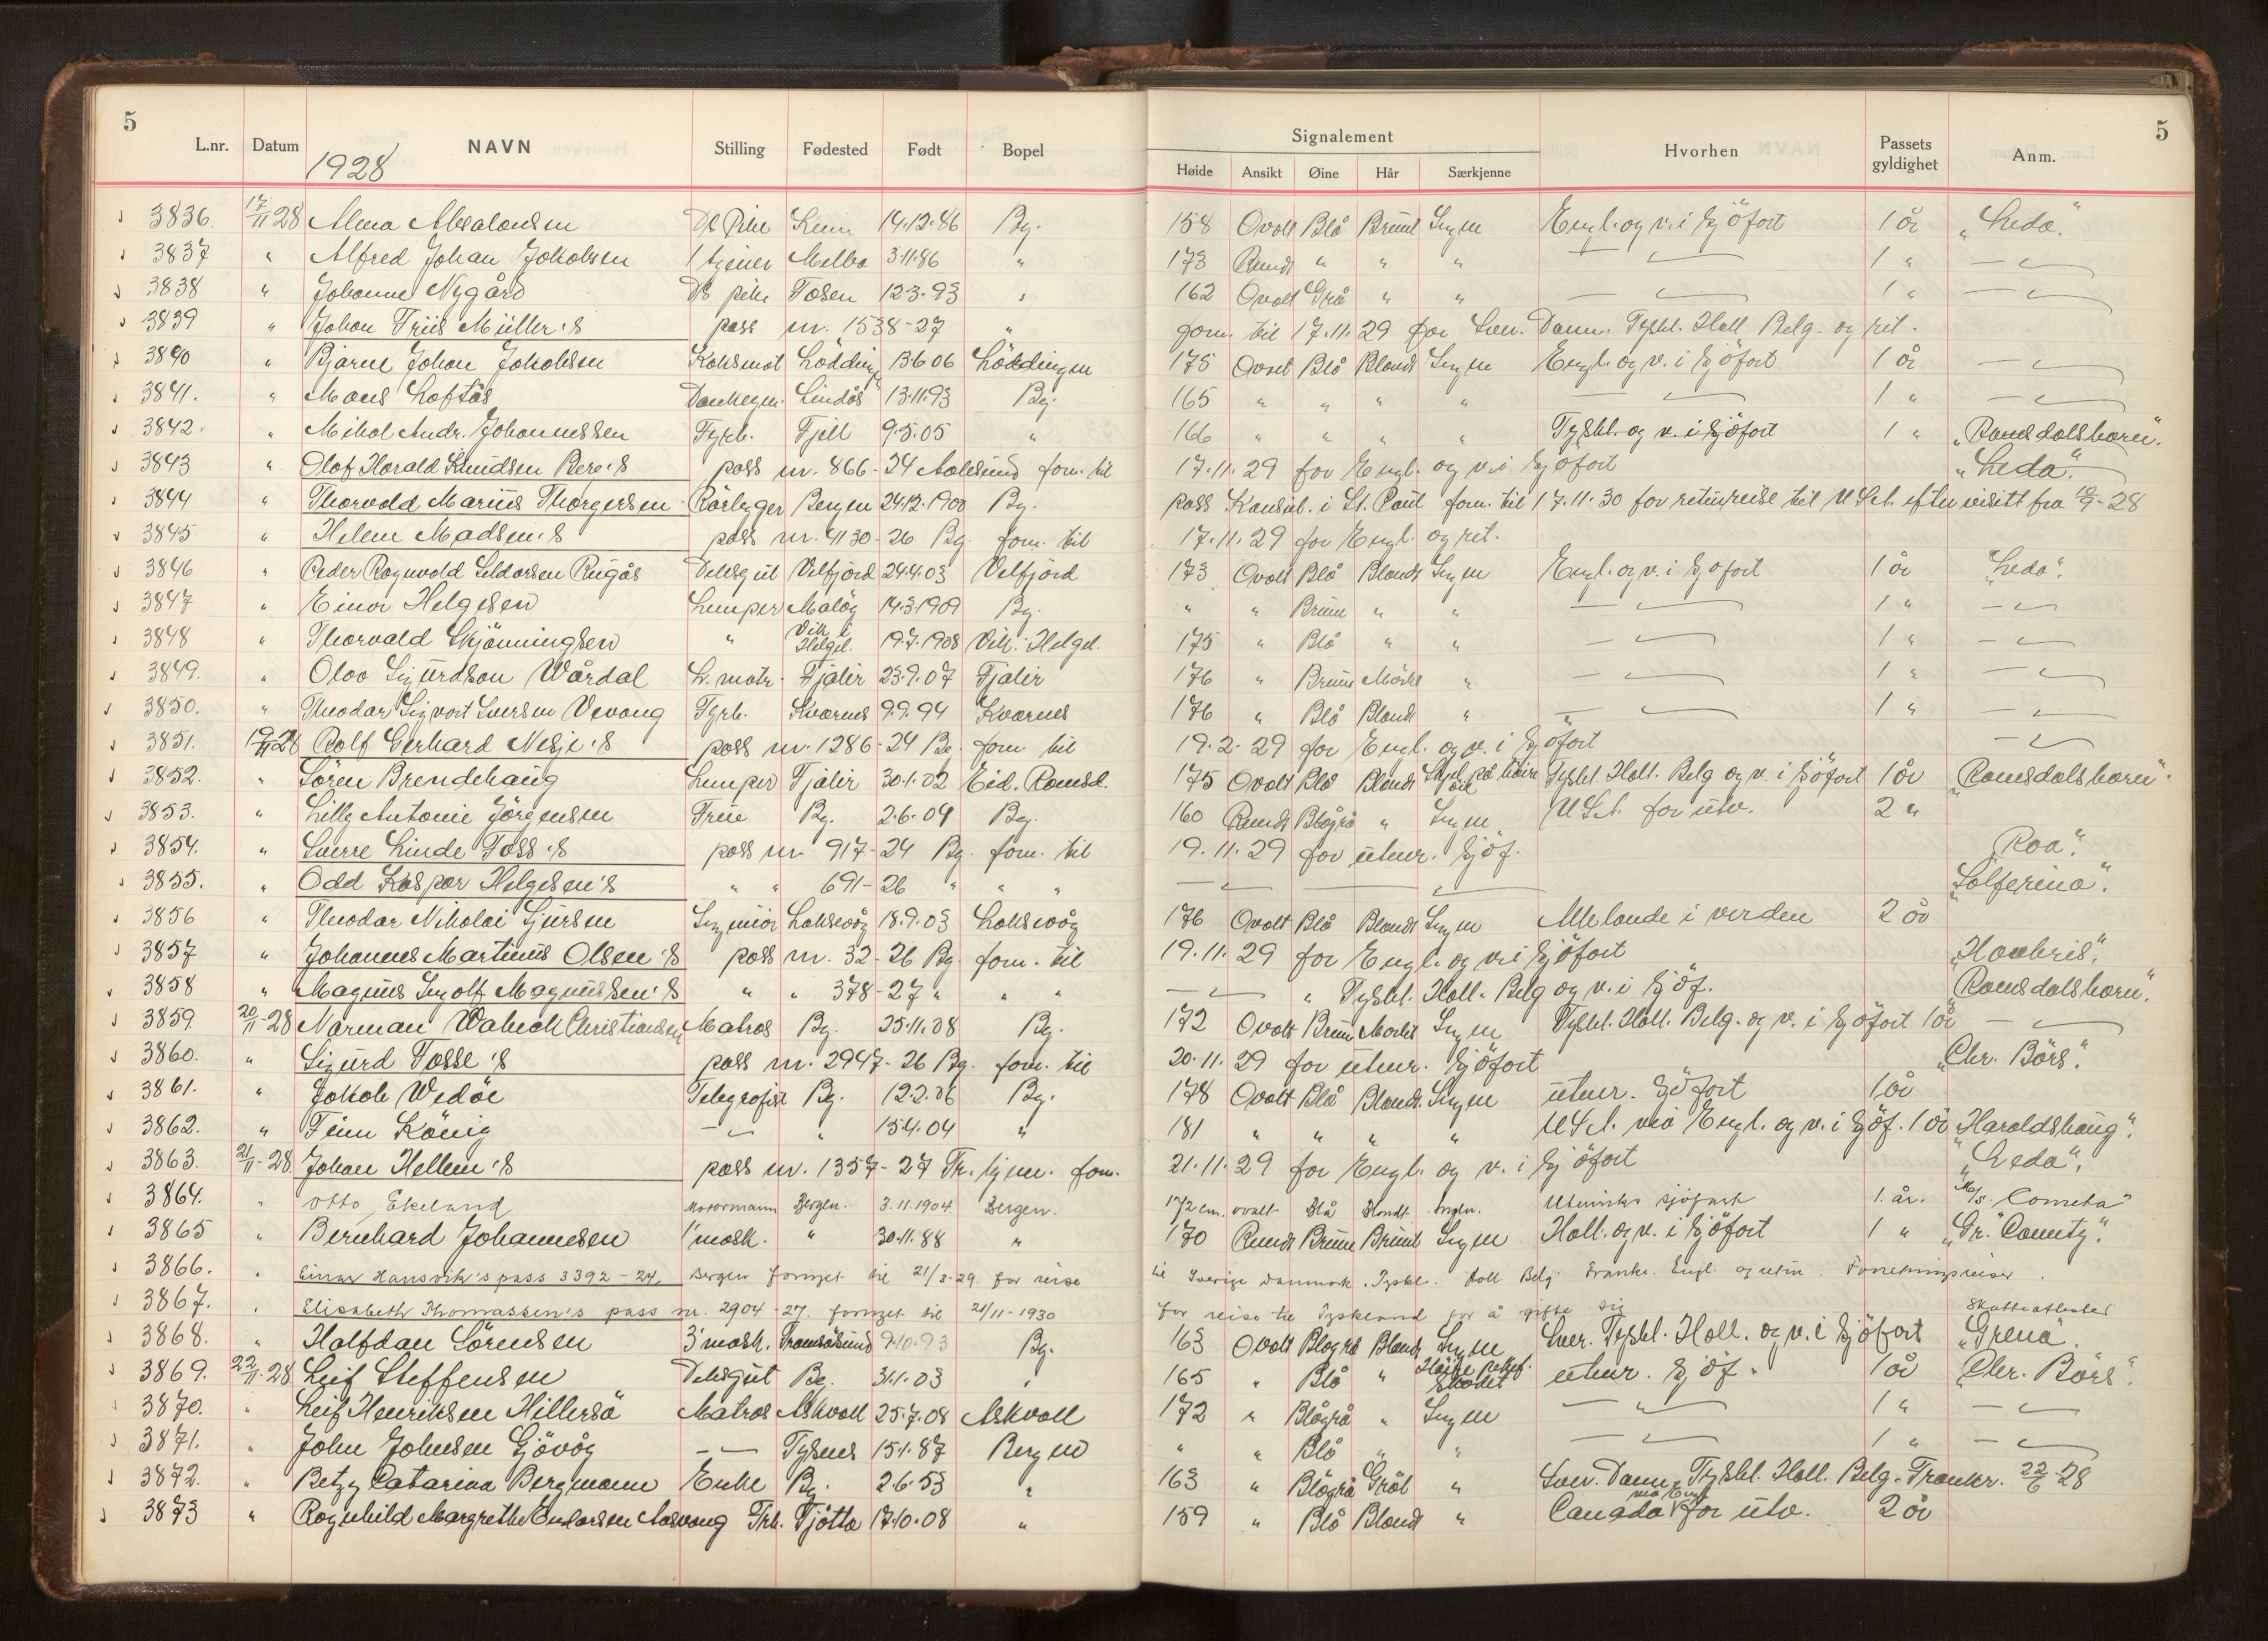 5
L.nr. Datum NAVN Stilling Fødested Født Bopel
1928
Signalement
Høide Ansikt Øine Hår Særkjenne Hvorhen Passets gyldighet Anm.
5
3836. 17/11 28 Alma Absalonsen Dk Pike 14.12.86 Bg. 158 Ovalt Blå Brunt Ingen Engl. og v. i Sjöfart 1 år "Leda".
3837 " Alfred Johan Jakobsen Melbo 3.11.86 " 173 Rundt " " " — 1 " —
3838 " Johanne Nygård Dk pike Fosen 12.3.93 " 162 Ovalt Grå " " — 1 " —
3839 " Johan Friis Müller's pass nr. 1538-27 " forn. til 17.11.29 for Sver. Danm. Tyskl. Holl Belg. og ret.
3840 " Bjarne Johan Jakobsen Koksmat Lödding 13.6.06 Löddingen 175 Ovalt Blå Blondt Ingen Engl. og v. i Sjöfart 1 år —
3841. " Mons Loftås Donkeym. Lindås 13.11.93 Bg. 165 " " " " — 1 " —
3842. " Mikal Andr. Johannessen Fyrb. Fjell 9.5.05 " 166 " " " " Tyskl. og v. i Sjöfart 1 " "Romsdalshorn".
3843 " Olaf Harald Knudsen Bere's pass nr. 866-24 Aalesund forn. til 17.11.29 for Engl. og v. i Sjöfart "Leda".
3844 " Thorvald Marius Thorgersen Rörlegger Bergen 24.12.1900 Bg. pass Konsul. i St. Paul forn. til 17.11.30 for returreise til U.S.A. efter visitt fra 10/9-28
3845 " Helene Madsen's pass nr. 4130-26 Bg. forn. til 17.11.29 for Engl. og ret.
3846 " Peder Ragnvald Seldorsen Rugås Dekksgut Velfjord 24.4.03 Velfjord 173 Ovalt Blå Blondt Ingen Engl. og v. i Sjöfart 1 år "Leda".
3847 " Einar Helgesen Lemper Malöy 14.3.1909 Bg. " " Brune " " — 1 " —
3848 " Thorvald Skjönningsen " Vik i Helgel. 19.7.1908 Vik i Helgel. 175 " Blå " " — 1 " —
3849. " Olav Sigurdson Wårdal L. matr. Fjaler 23.9.07 Fjaler 176 " Brune Mörke " — 1 " —
3850. " Theodor Sigvart Iversen Vevang Fyrb. Kvernes 9.9.94 Kvernes 176 " Blå Blondt " — 1 " —
3851. 19/11 28 Rolf Gerhard Nesje's pass nr. 1286-24 Bg. forn til 19.2.29 for Engl. og v. i Sjöfart —
3852. " Sören Brendehaug Lemper Fjaler 30.1.02 Eid. Romsd. 175 Ovalt Blå Blondt Tyskl. Holl. Belg og v. i Sjöfart 1 år "Romsdalshorn".
3853. " Lilly Antonie Jörgensen Frue Bg. 2.6.04 Bg. 160 Rundt Blågrå " Ingen U.S.A. for utv. 2 "
3854. " Sverre Linde Foss's pass nr 917-24 Bg. forn. til 19.11.29 for utenr. Sjöf. "Roa".
3855. " Odd Kaspar Helgesen's " " 691-26 " " " — "Solferino".
3856 " Theodor Nikolai Sjursen Ingeniör Laksevåg 18.9.03 Laksevåg 176 Ovalt Blå Blondt Ingen Alle lande i verden 2 år
3857 " Johannes Martinus Olsen's pass nr. 32-26 Bg. forn. til 19.11.29 for Engl. og v. i Sjöfart "Haukris".
3858 " Magnus Ingolf Magnussen's " " 378-27 " " " — " Tyskl. Holl. Belg og v. i Sjöf. "Romsdalshorn".
3859. 20/11-28 Norman Christiansen Matros Bg. 25.11.08 Bg. 172 Ovalt Brune Mörkt Ingen Tyskl. Holl. Belg. og v. i Sjöfart 1 år —
3860. " Sigurd Fosse's pass nr. 2947-26 Bg. forn. til 20.11.29 for utenr. Sjöfart "Chr. Börs".
3861. " Jakob Wedöe Telegrafist Bg. 12.2.06 Bg. 178 Ovalt Blå Blondt Ingen utenr. Sjöfart 1 år
3862. " Finn König — " 15.4.04 " 181 " " " " U.S.A. via Engl. og v. i Sjöf. 1 år "Haraldshaug".
3863. 21/11-28. Johan Hellem's pass nr. 1357-27 forn. 21.11.29 for Engl. og v. i Sjöfart "Leda".
3864. " Otto Ekeland Motormann Bergen. 3.11.1904. Bergen. 172 cm. ovalt Blå Blondt Ingen. Utenriks sjøfart 1. år. M/S. "Cometa"
3865 " Bernhard Johannesen 1' mask. " 30.11.88 " 170 Rundt Brune Brunt Ingen Holl. og v. i Sjöfart 1 " "Gr. County".
3866. " Einar Hansvik's pass 3392-24. Bergen fornyet til 21/2-29. for reise til Sverige Danmark. Tyskl. Holl Belg Frankr. Engl. og retur. Forretningsreiser.
3867. " Elisabeth Thomassen's pass nr. 2904-27. fornyet til 21/11-1930 for reise til Tyskland for å gifte sig Skatteattester
3868. " Halfdan Sörensen 3' mask. Tromsösund 9.10.93 Bg. 163 Ovalt Blågrå Blondt Ingen Sver. Tyskl. Holl. og v. i Sjöfart "Grena".
3869. 22/11-28 Leif Steffensen Dekksgut Bg. 31.1.03 " 165 " Blå " Höire skadet utenr. Sjöf. 1 år "Chr. Börs".
3870. " Leif Henriksen Hillersö Matros Askvoll 25.7.08 Askvoll 172 " Blågrå " Ingen — 1 " —
3871. " John Johnsen Gjövåg — Tysnes 15.1.87 Bergen " " Blå " " — 1 " —
3872. " Betzy Catarina Bergmann Enke Bg. 2.6.53 " 163 " Blågrå Grått " Sver. Danm. Tyskl. Holl. Belg. Frankr. 22/6-28
3873 " Ragnhild Margrethe Aasvang Frk. Tjötta 17.10.08 " 159 " Blå Blondt " Canada via Engl. for utv. 2 år